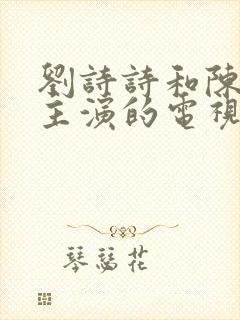 劉詩詩和陳
主演的電視
琴瑟花